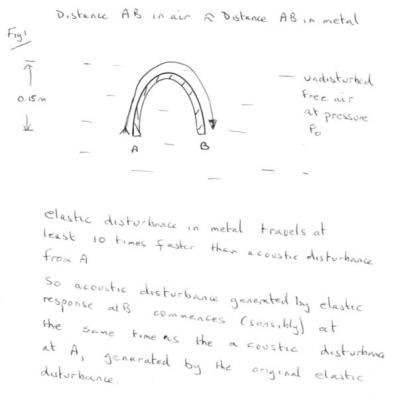 Distance AB in air ≈ Distance AB in metal
Fig1
0.15m
undisturbed
free air
at pressure
Po
A
B
elastic disturbance in metal travels at
least 10 times faster than acoustic disturbance
from A
So acoustic disturbance generated by elastic
response at B commences (sensibly) at
the same time as the acoustic disturbance
at A, generated by the original elastic
disturbance.